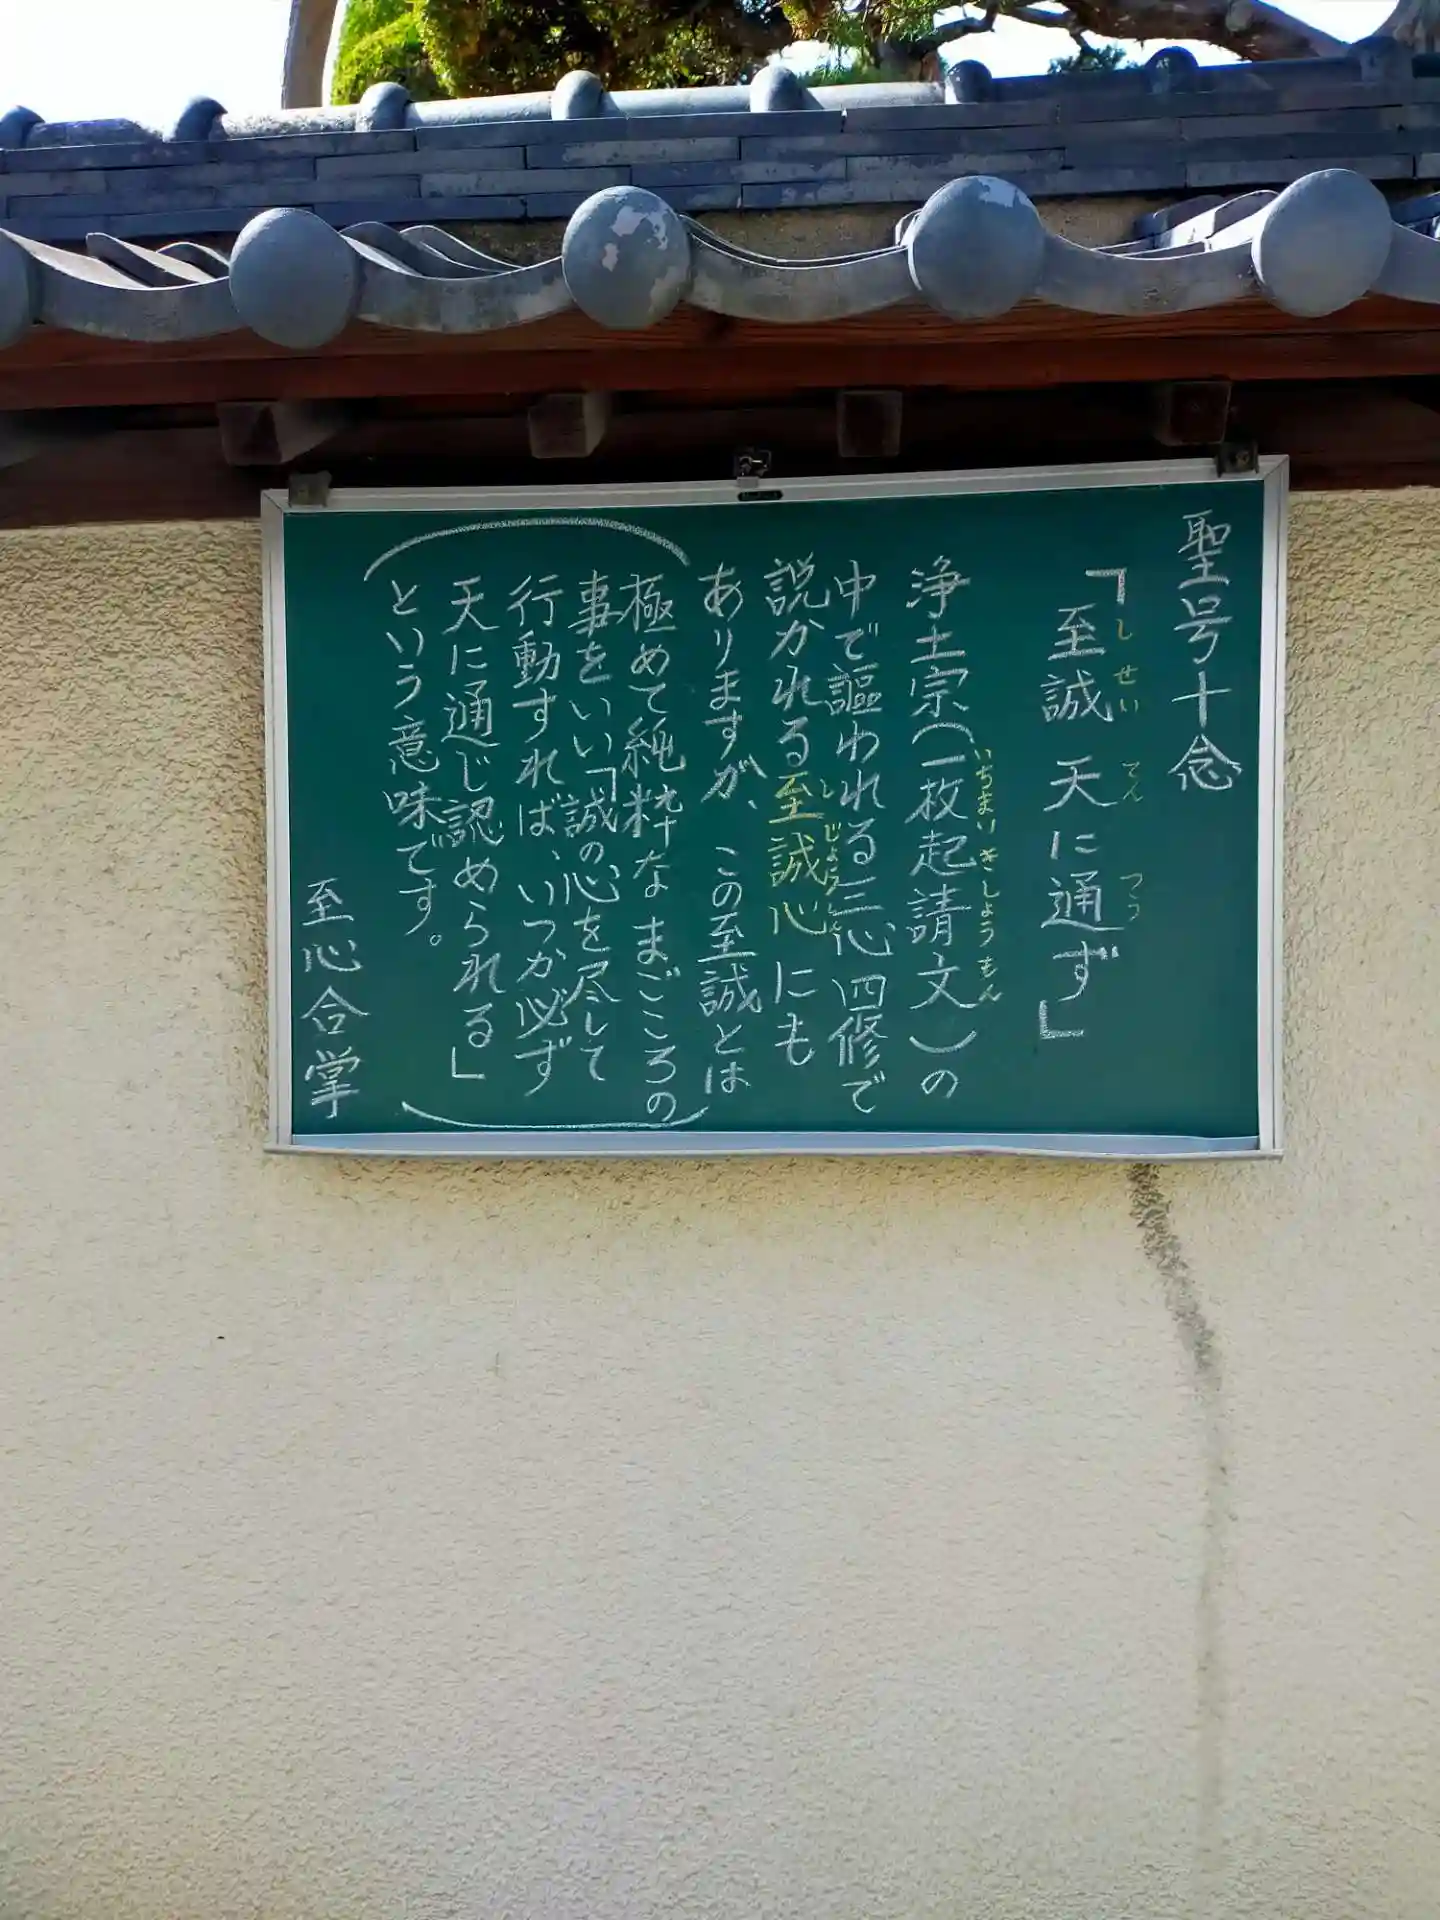 聖号十念
「至誠 天に通ず」
しせい てん つう
浄土宗(一枚起請文)の
いちまいきしょうもん
中で謳われる三心四修で
説かれる至誠心にも
しじょうしん
ありますが、この至誠とは
極めて純粋なまごころの
事をいい「誠の心を尽して
行動すれば、いつか必ず
天に通じ認められる」
という意味です。
至心合掌